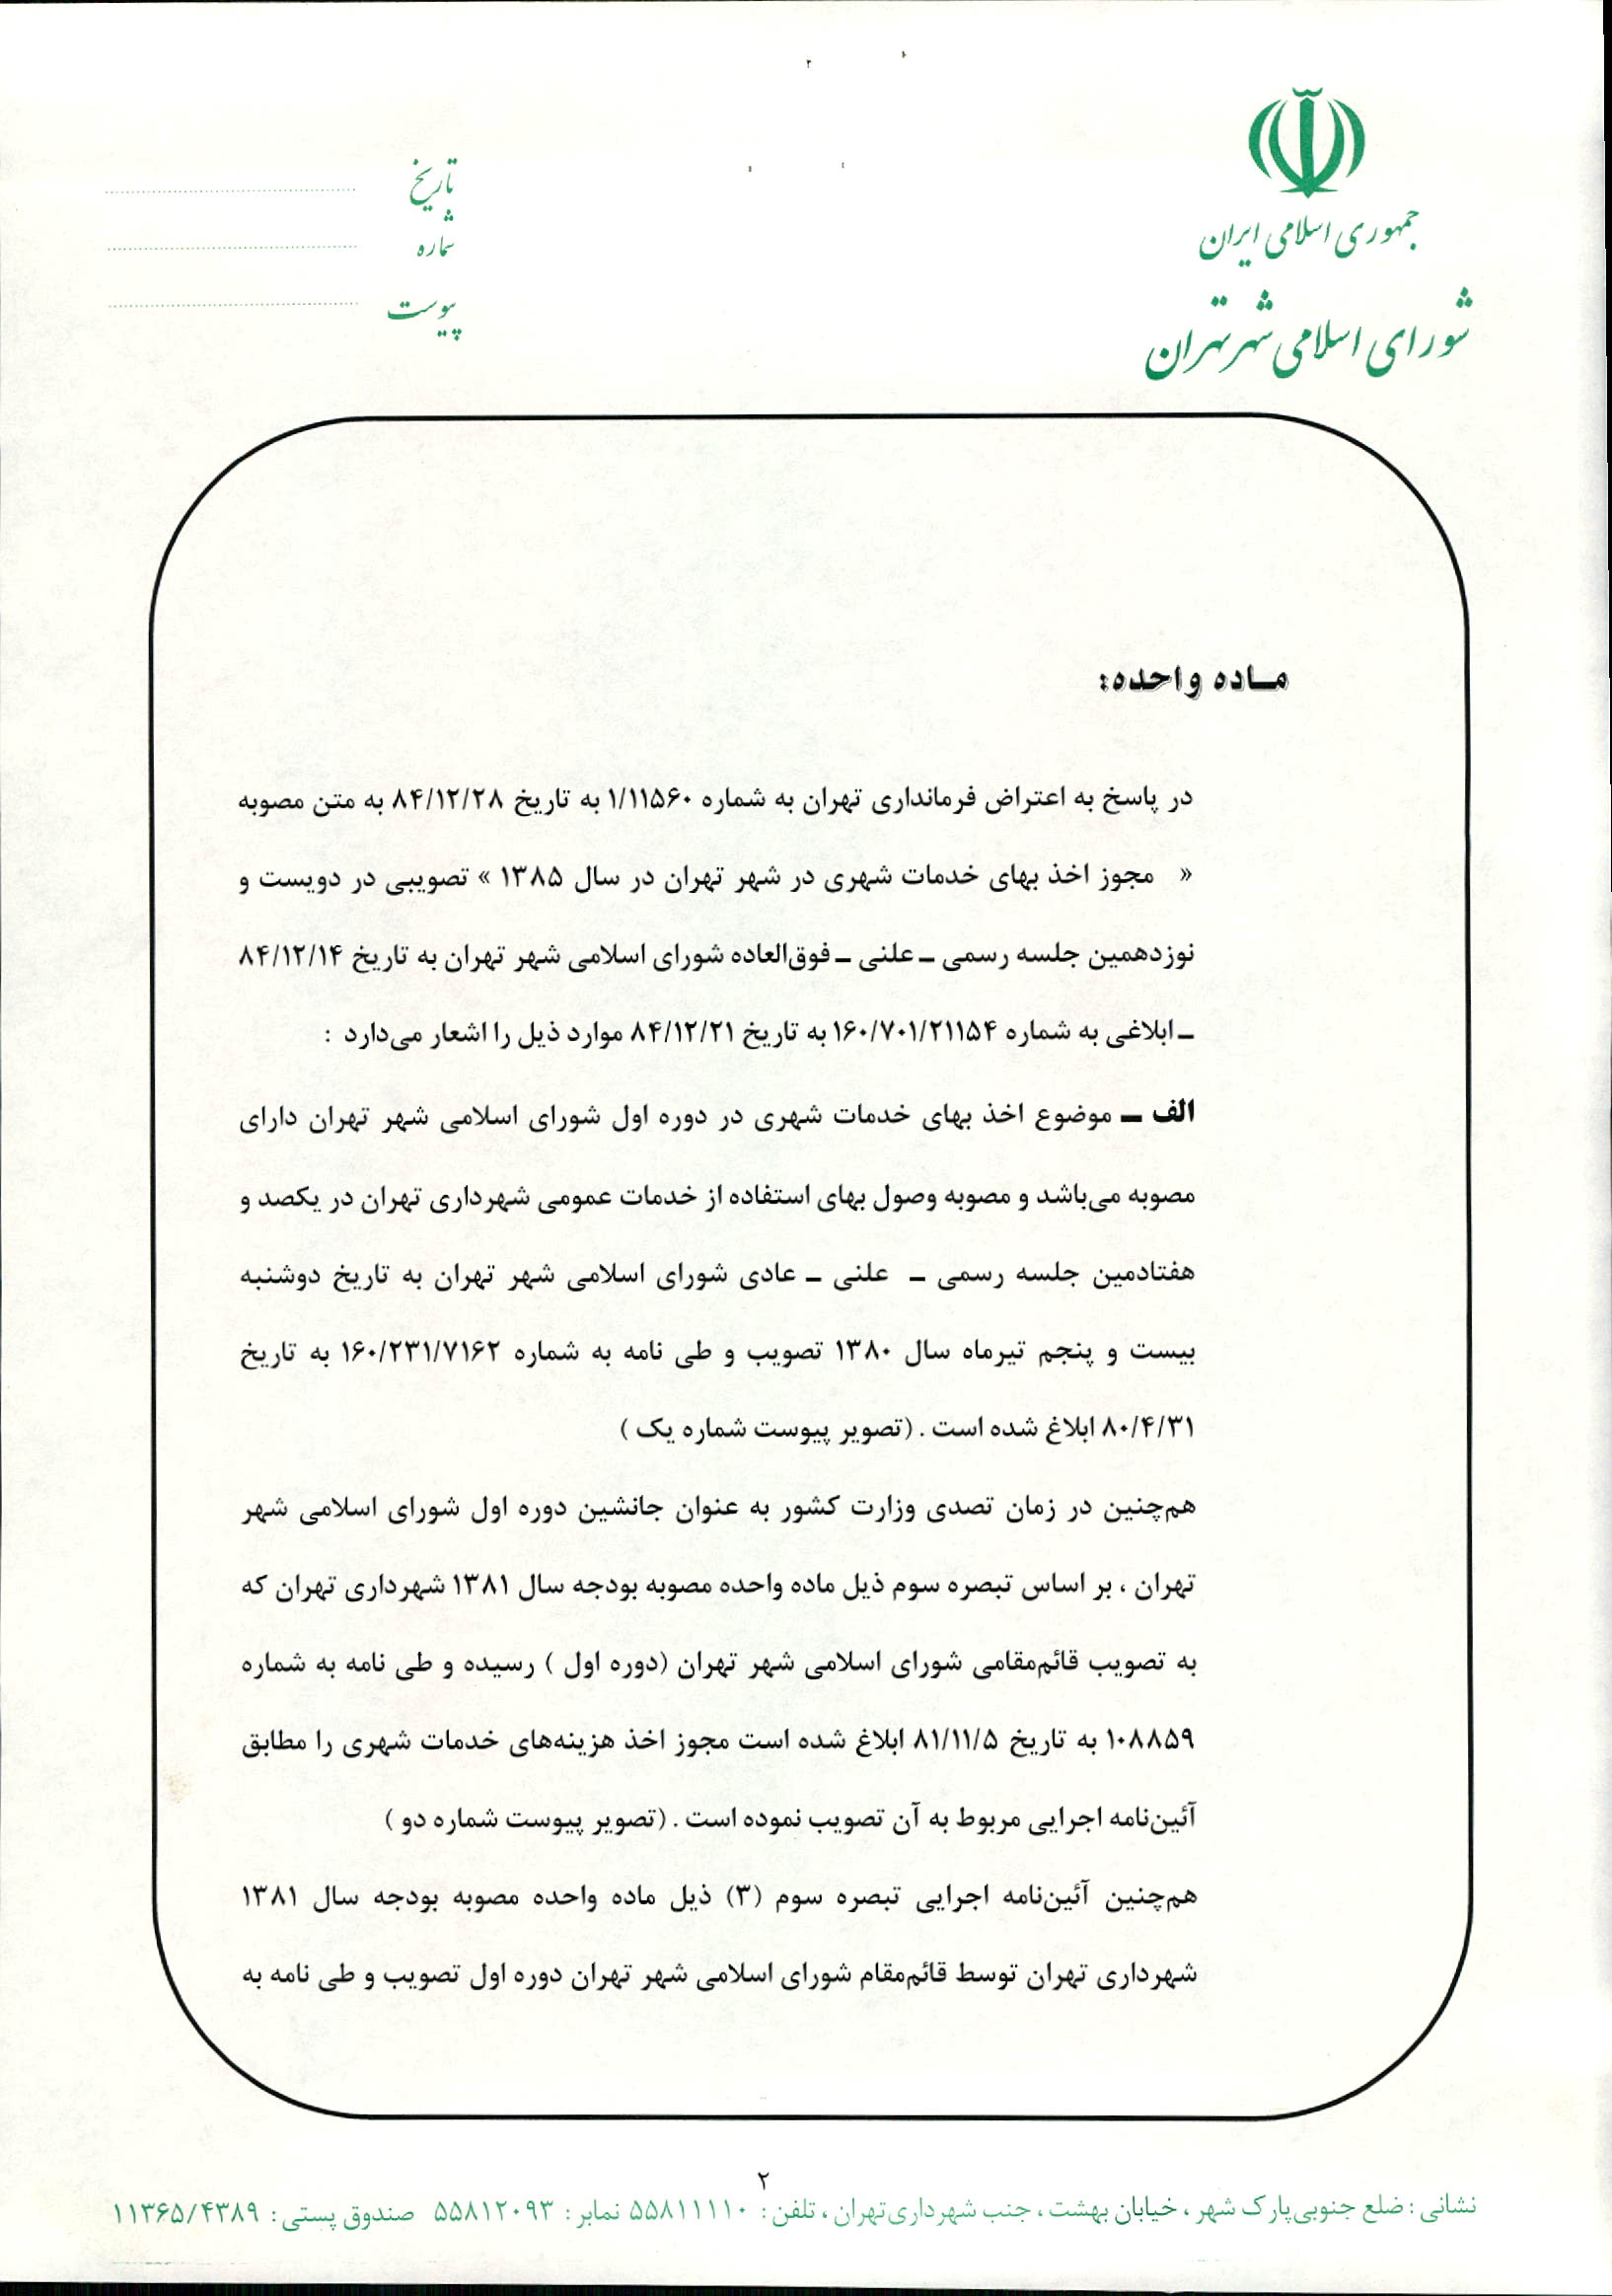 جمهوری اسلامی ایران
شورای اسلامی شهر تهران
تاریخ
شماره
پیوست
ماده واحده:
در پاسخ به اعتراض فرمانداری تهران به شماره ۱/۱۱۵۶۰ به تاریخ ۸۴/۱۲/۲۸ به متن مصوبه
« مجوز اخذ بهای خدمات شهری در شهر تهران در سال ۱۳۸۵ » تصویبی در دویست و
نوزدهمین جلسه رسمی ـ علنی ـ فوق‌العاده شورای اسلامی شهر تهران به تاریخ ۸۴/۱۲/۱۴
ـ ابلاغی به شماره ۱۶۰/۷۰۱/۲۱۱۵۴ به تاریخ ۸۴/۱۲/۲۱ موارد ذیل را اشعار می‌دارد :
الف ـ موضوع اخذ بهای خدمات شهری در دوره اول شورای اسلامی شهر تهران دارای
مصوبه می‌باشد و مصوبه وصول بهای استفاده از خدمات عمومی شهرداری تهران در یکصد و
هفتادمین جلسه رسمی ـ علنی ـ عادی شورای اسلامی شهر تهران به تاریخ دوشنبه
بیست و پنجم تیرماه سال ۱۳۸۰ تصویب و طی نامه به شماره ۱۶۰/۲۳۱/۷۱۶۲ به تاریخ
۸۰/۴/۳۱ ابلاغ شده است . (تصویر پیوست شماره یک )
هم‌چنین در زمان تصدی وزارت کشور به عنوان جانشین دوره اول شورای اسلامی شهر
تهران ، بر اساس تبصره سوم ذیل ماده واحده مصوبه بودجه سال ۱۳۸۱ شهرداری تهران که
به تصویب قائم‌مقامی شورای اسلامی شهر تهران (دوره اول ) رسیده و طی نامه به شماره
۱۰۸۸۵۹ به تاریخ ۸۱/۱۱/۵ ابلاغ شده است مجوز اخذ هزینه‌های خدمات شهری را مطابق
آئین‌نامه اجرایی مربوط به آن تصویب نموده است . (تصویر پیوست شماره دو )
هم‌چنین آئین‌نامه اجرایی تبصره سوم (۳) ذیل ماده واحده مصوبه بودجه سال ۱۳۸۱
شهرداری تهران توسط قائم‌مقام شورای اسلامی شهر تهران دوره اول تصویب و طی نامه به
۲
نشانی : ضلع جنوبی پارک شهر ، خیابان بهشت ، جنب شهرداری تهران ، تلفن : ۵۵۸۱۱۱۱۰ نمابر : ۵۵۸۱۲۰۹۳ صندوق پستی : ۱۱۳۶۵/۴۳۸۹